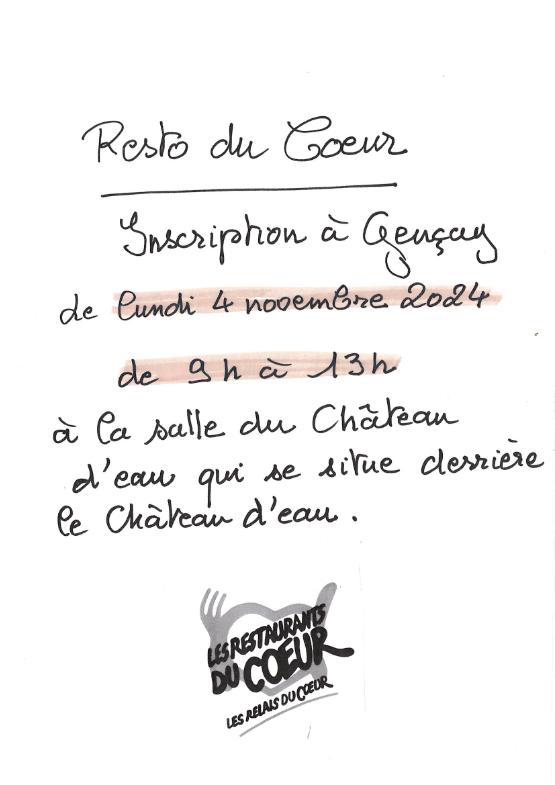 Resto du Coeur
Inscription à Gençay
de lundi 4 novembre 2024
de 9h à 13h
à la salle du Château
d'eau qui se situe derrière
le Château d'eau.
LES RESTAURANTS
DU COEUR
LES RELAIS DU CŒUR